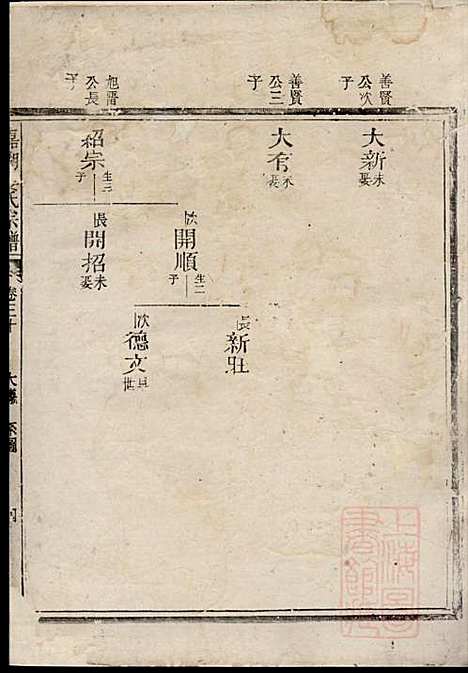 善賢公次子
大新 未娶
善賢公三子
大有 未娶
旭晉公長子
紹宗 生二子
次 開順 生二子
長 開招 未娶
長 新壯
次 德文 世
氏宗譜
卷三十
系圖
四